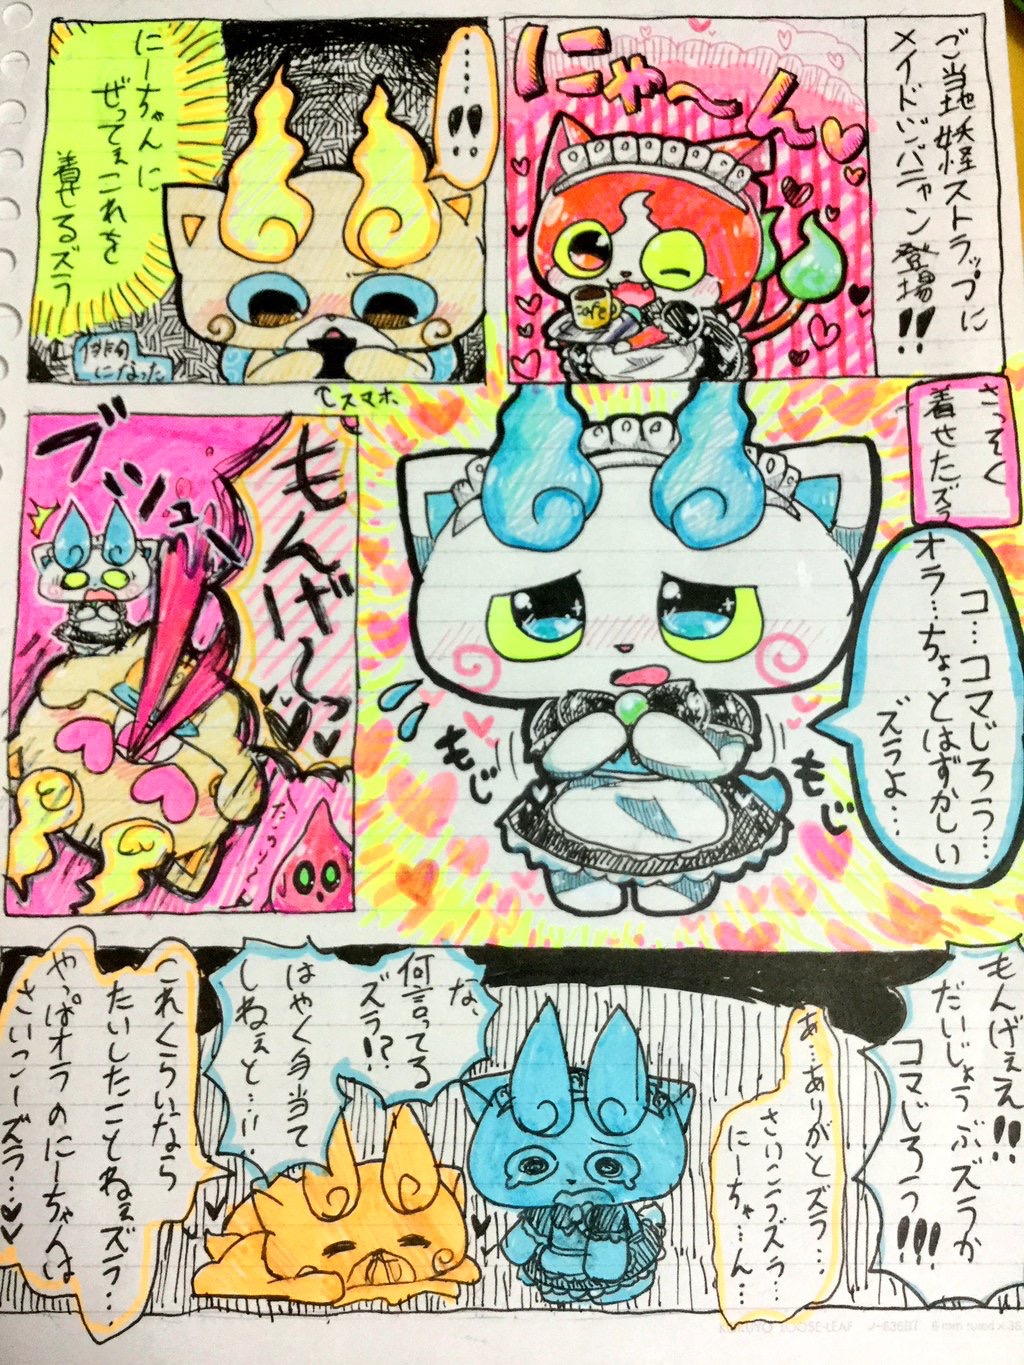 ご当地妖怪ストラップに
メイドジバニャン登場!!
にゃ〜ん
cafe
……!!
にーちゃんに
ぜってぇこれを
着せるズラ
俳句
になった
↑スマホ
さっそく
着せたズラ
コ…コマじろう…
オラ…ちょっとはずかしい
ズラよ…
もじ
もじ
もんげ〜っ
ブシュッ
もんげぇえ!!
だいじょうぶズラか
コマじろう!!!
あ…ありがとズラ…
さいこうズラ…
にーちゃ…ん…
な、
何言ってる
ズラ!?
はやく手当て
しねぇと…!!
これくらいなら
たいしたことねぇズラ…
やっぱオラのにーちゃんは
さいっこーズラ…
KOKUYO LOOSE-LEAF ノ-836BT 6 mm ruled × 36